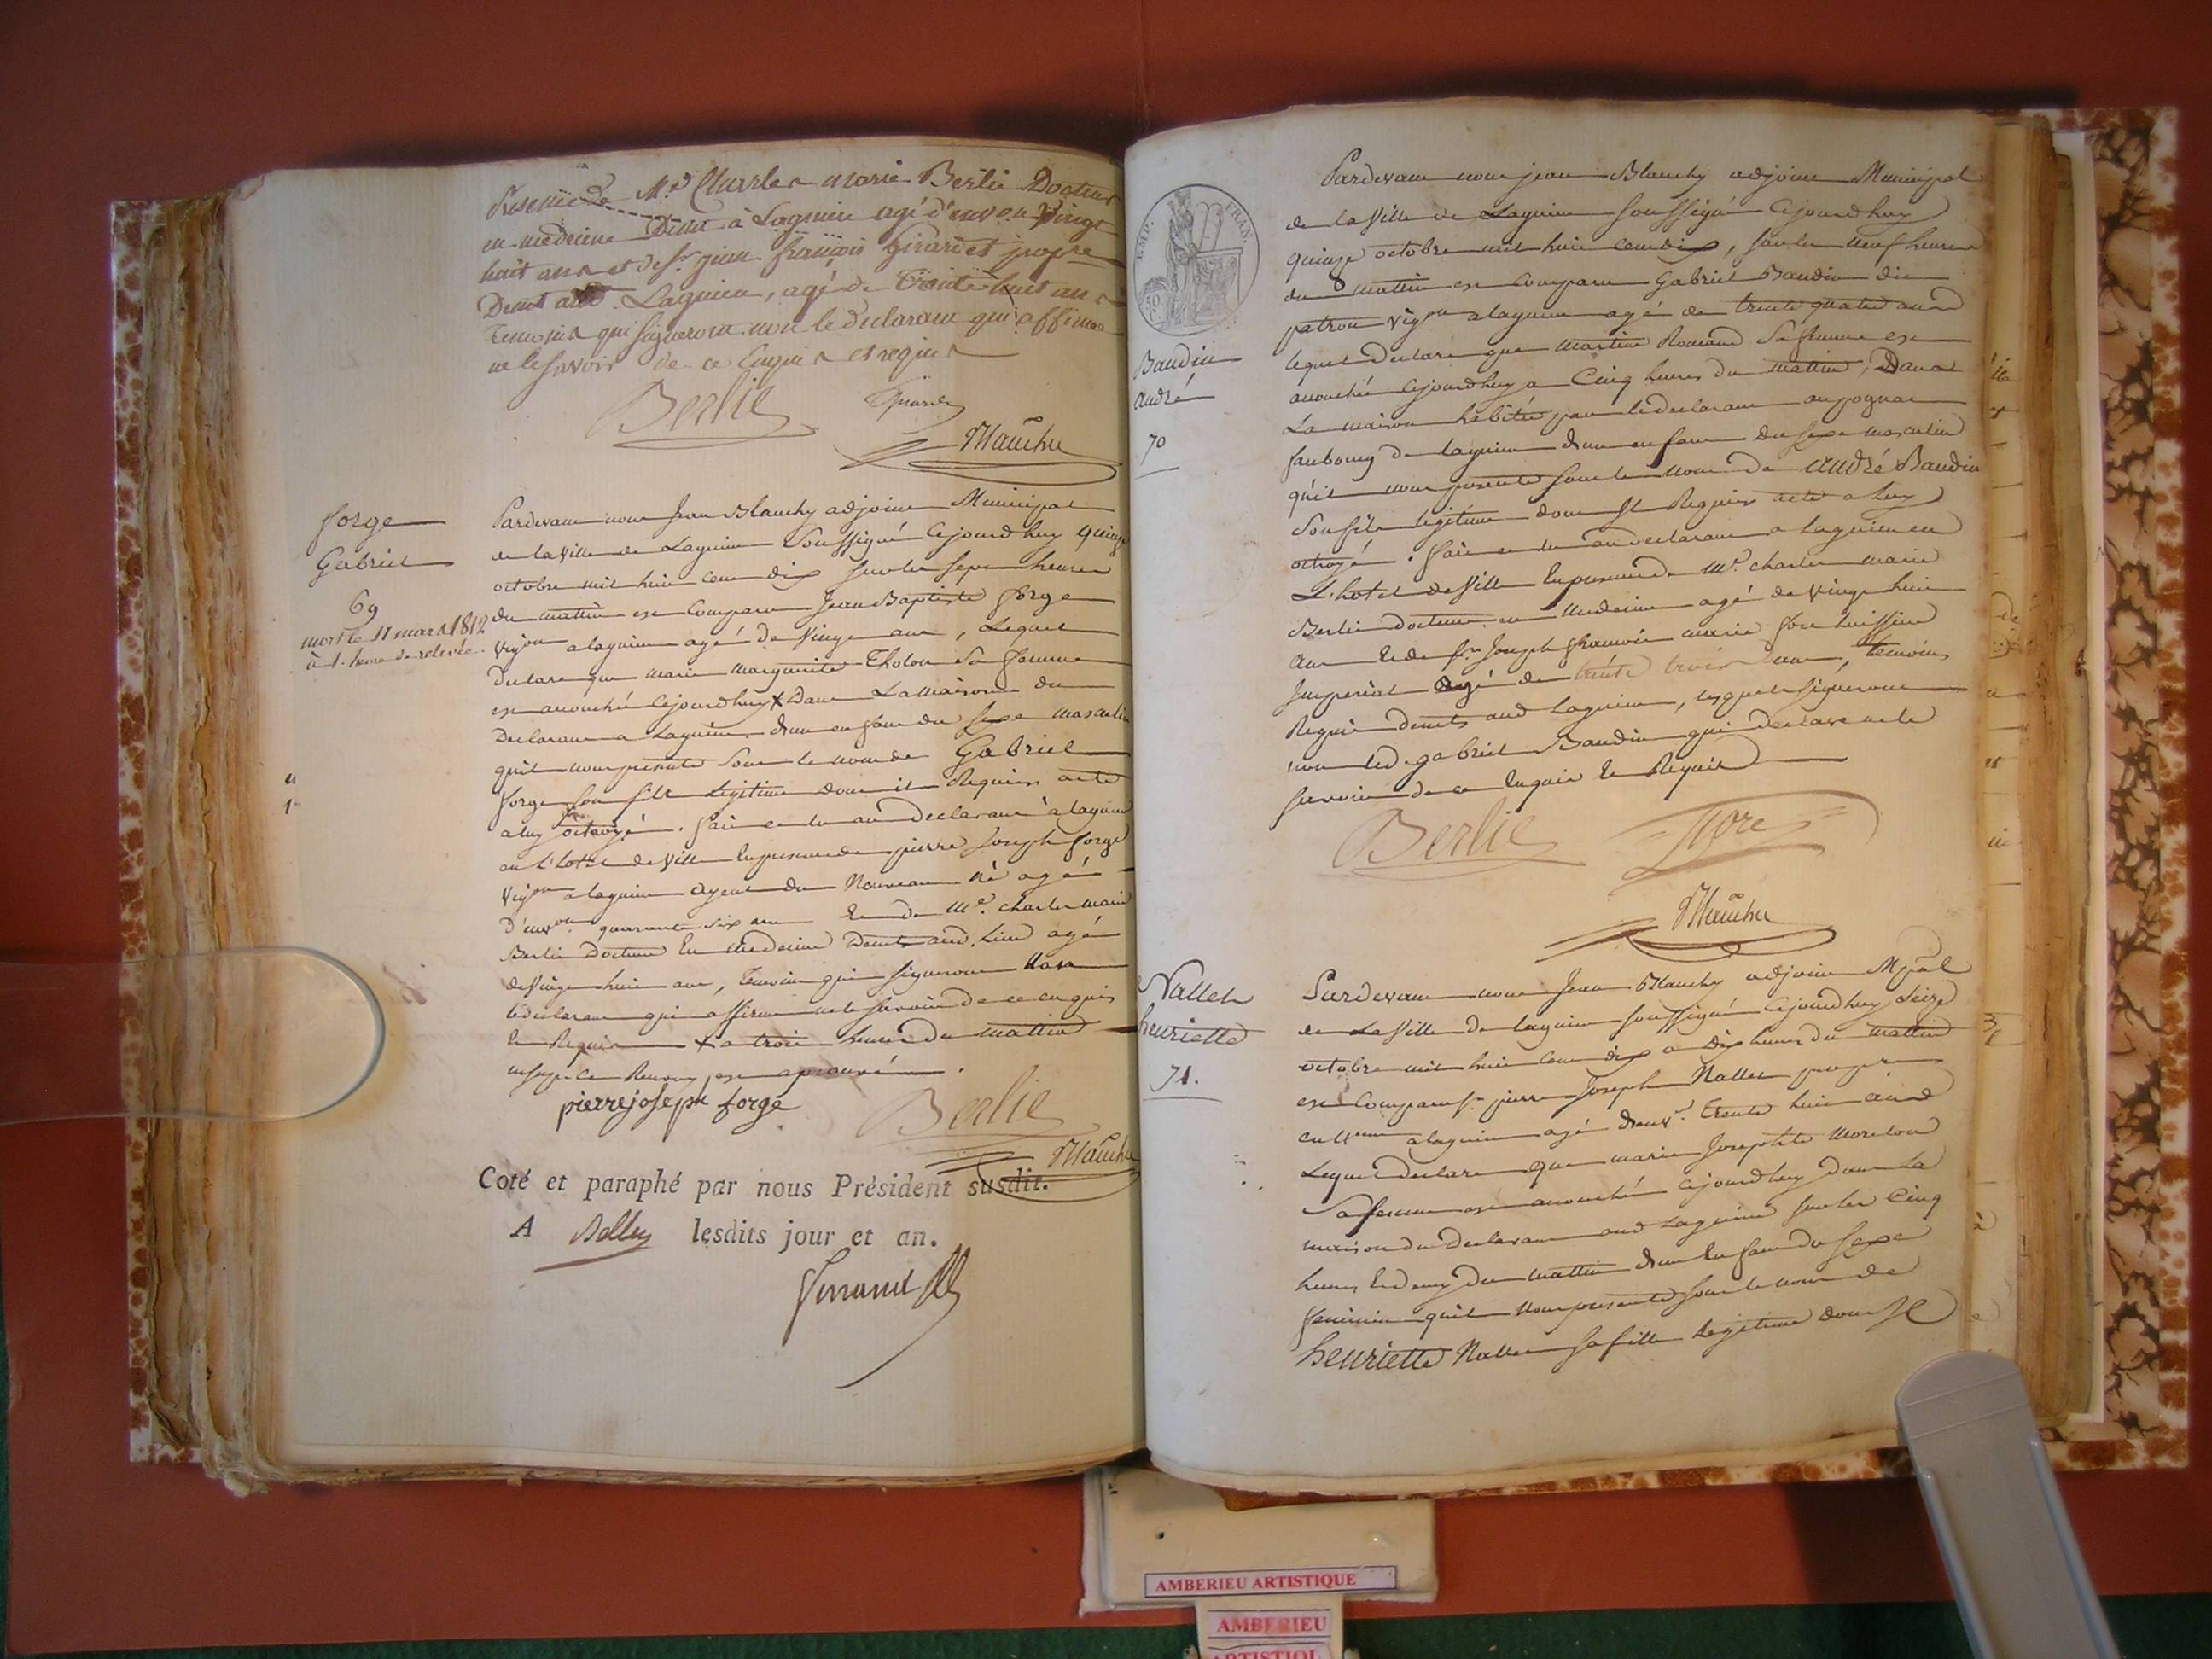 présence de Mr Charles marie Berlie Docteur
en medecine Demt à Lagnieu agé d'environ vingt
huit ans et de Sr jean françois Girardet propre
Demt aud. Lagnieu, agé de trente huit ans
temoins qui signeront non le declarant qui affirme
ne le savoir de ce Enquis et requis
Berlie
Blanchy
forge
Gabriel
69
mort le 11 mars 1812
à 1. heure de relevée.
Pardevant nous Jean Blanchy adjoint Municipal
de la Ville de Lagnieu Soussigné Cejourdhuy quinze
octobre mil huit cent dix sur les sept heures
du mattin est Comparu Jean Baptiste forge
Vigon a lagnieu agé de Vingt ans, Lequel
Declare que marie marguerite Tholon Sa femme
est accouchée Cejourdhuy x Dans La maison du
Declarant a Lagnieu, d'un enfant du sexe masculin
quil nous presente Sous le nom de Gabriel
forge son fils legitime dont il a Requis acte
a luy octroyé. fait et lu au Declarant à lagnieu
en L'hotel de Ville En presence de pierre Joseph forge
Vigon a lagnieu ayeul du Nouveau Né agé
d'envon quarante six ans Et de Mr. charles marie
Berlie Docteur En Medecine Demt aud. Lieu agé
de Vingt huit ans, temoins qui signeront Non
le declarant qui affirme ne le savoir de ce enquis
Et Requis x a trois heures du mattin
pierre joseph forge
Berlie
Blanchy
Coté et paraphé par nous Président susdit.
A Belley lesdits jour et an.
EMP. FRAN.
50
Baudin
André
70
Pardevant nous jean Blanchy adjoint Municipal
de la Ville de Lagnieu Soussigné Cejourdhuy
quinze octobre mil huit cent dix, sur les neuf heures
du mattin est Comparu Gabriel Baudin dit
patron Vigon a lagnieu agé de trente quatre ans
lequel declare que martine Romand Sa femme est
accouchée Cejourdhuy a Cinq heures du mattin, Dans
La maison habitée par le declarant
faubourg de lagnieu d'un enfant du sexe masculin
qu'il nous presente sous le nom de André Baudin
Son fils legitime dont Il Requis acte a luy
octroyé. fait et lu au declarant a Lagnieu en
L'hotel de Ville En presence de Mr. charles marie
Berlie docteur en Medecine agé de Vingt huit
ans Et de Sr Joseph francois marie fore huissier
Imperial agé de trente trois ans, temoins
Requis demts aud Lagnieu, lesquels signeront
non led. gabriel Baudin qui declare ne le
savoir de ce Enquis Et Requis
Berlie fore
Blanchy
Nallet
henriette
71.
Pardevant nous Jean Blanchy adjoint Mpal
de La Ville de lagnieu soussigné Cejourdhuy Seize
octobre mil huit cent dix a Dix heures du mattin
est Comparu Sr pierre Joseph Nallet propre
a lagnieu agé d'envn. trente huit ans
Lequel declare que marie Josephte Morelon
Sa femme est accouchée Cejourdhuy dans La
maison du Declarant aud Lagnieu sur les Cinq
heures Et demy du mattin d'un Enfant du sexe
feminin quil nous presente sous le nom de
henriette Nallet sa fille legitime dont Il
AMBERIEU ARTISTIQUE
AMBERIEU